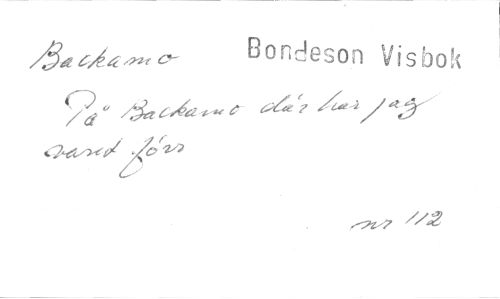 Backamo Bondeson Visbok
På Backamo där har jag
varit förr
nr 112